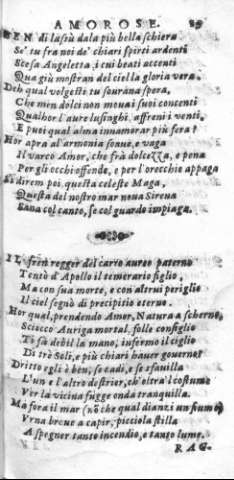 AMOROSE. 89
BEN di lasù da la più bella schiera
Se' tu fra noi de' chiari spirti ardenti
Scesa Angeletta, i cui beati accenti
Qua giù mostran del ciel la gloria vera.
Deh qual volgesti tu sourana spera,
Che men dolci non moua i suoi concenti
Qualhor l'aure lusinghi, affreni i venti,
E puoi qual alma innamorar più fera?
Hor apra al'armonia soaue, e vaga
Il varco Amor, che frà dolcezza, e pena
Per gli occhi offende, e per l'orecchie appaga
Si direm poi, questa celeste Maga,
Questa del nostro mar noua Sirena
Sana col canto, se col guardo impiaga.
IL fren regger del carro aureo paterno
Tentò d'Apollo il temerario figlio,
Ma con sua morte, e con altrui periglio
Il ciel segnò di precipitio eterno.
Hor qual, prendendo Amor, Natura a scherno,
Sciocco Auriga mortal, folle consiglio
Ti fà debil la mano, infermo il ciglio
Di trè Soli, e più chiari hauer gouerno?
Dritto egli è ben, se cadi, e se sfauilla
L'un e l'altro destrier, ch'oltra'l costume
Ver la vicina fugge onda tranquilla.
Ma fora il mar (nõ che qual dianzi un fiume)
Vrna breue a capir, picciola stilla
A spegner tanto incendio, e tanto lume.
RAG.